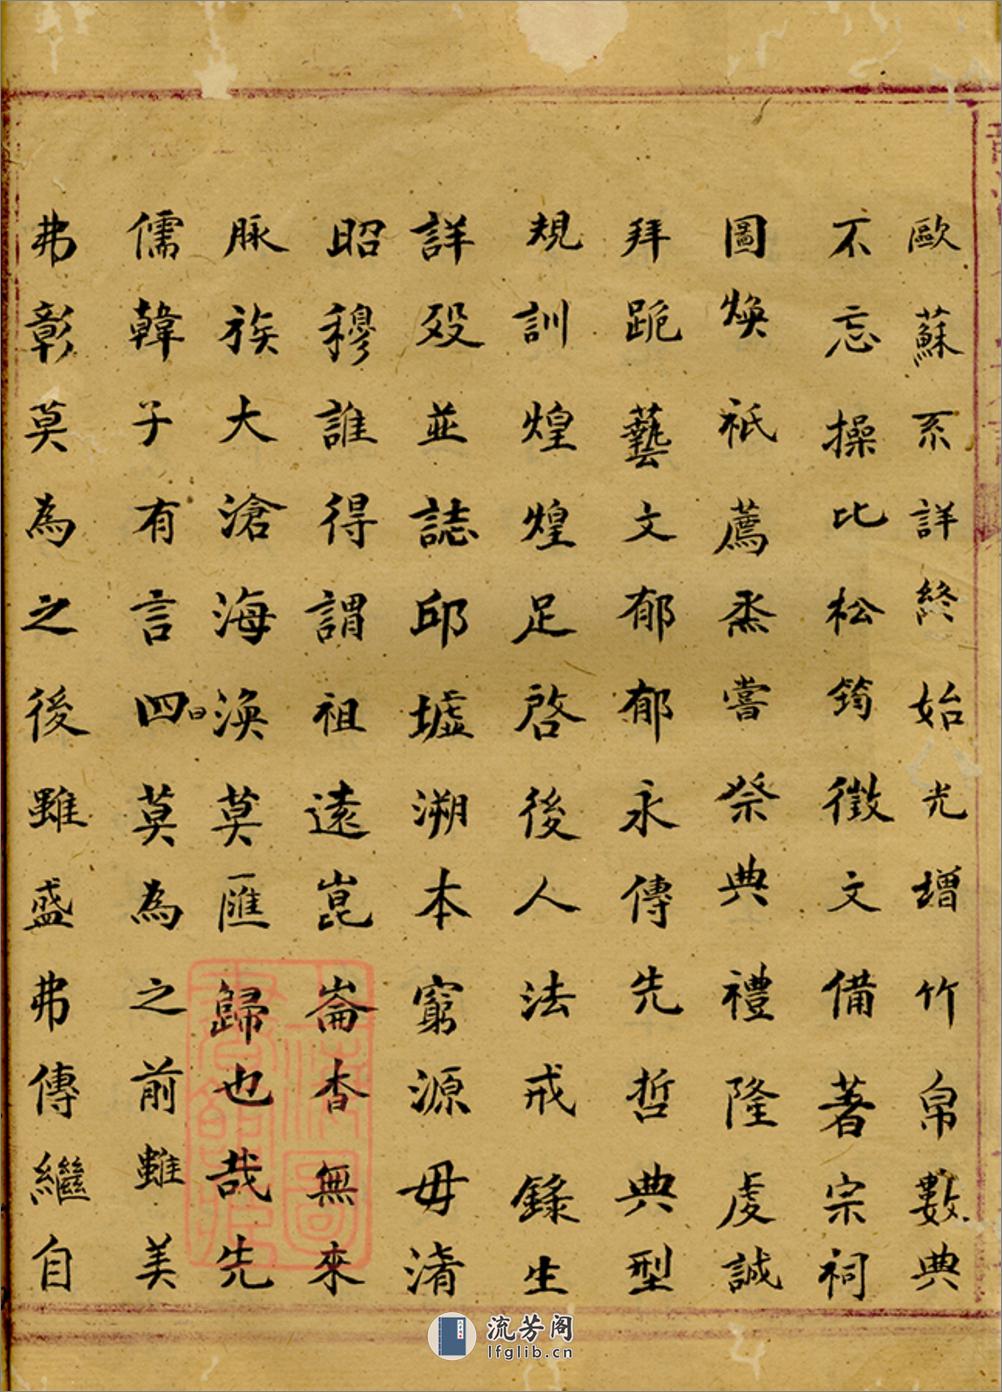 歐蘇系詳終始光增竹帛數典
不忘操比松筠徵文備著宗祠
圖煥祇薦烝嘗祭典禮隆虔誠
拜跪藝文郁郁永傳先哲典型
規訓煌煌足啓後人法戒錄生
詳殁並誌邱墟溯本窮源毋淆
昭穆誰得謂祖遠崑崙杳無來
脉族大滄海渙莫匯歸也哉先
儒韓子有言曰莫為之前雖美
弗彰莫為之後雖盛弗傳繼自
上海圖書館藏
流芳阁
lfglib.cn